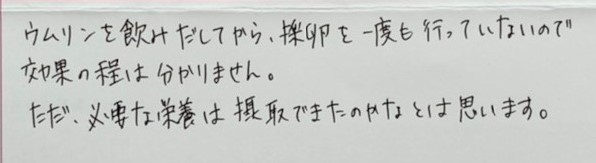 ウムリンを飲みだしてから、採卵を一度も行っていないので
効果の程は分かりません。
ただ、必要な栄養は摂取できたのかなとは思います。